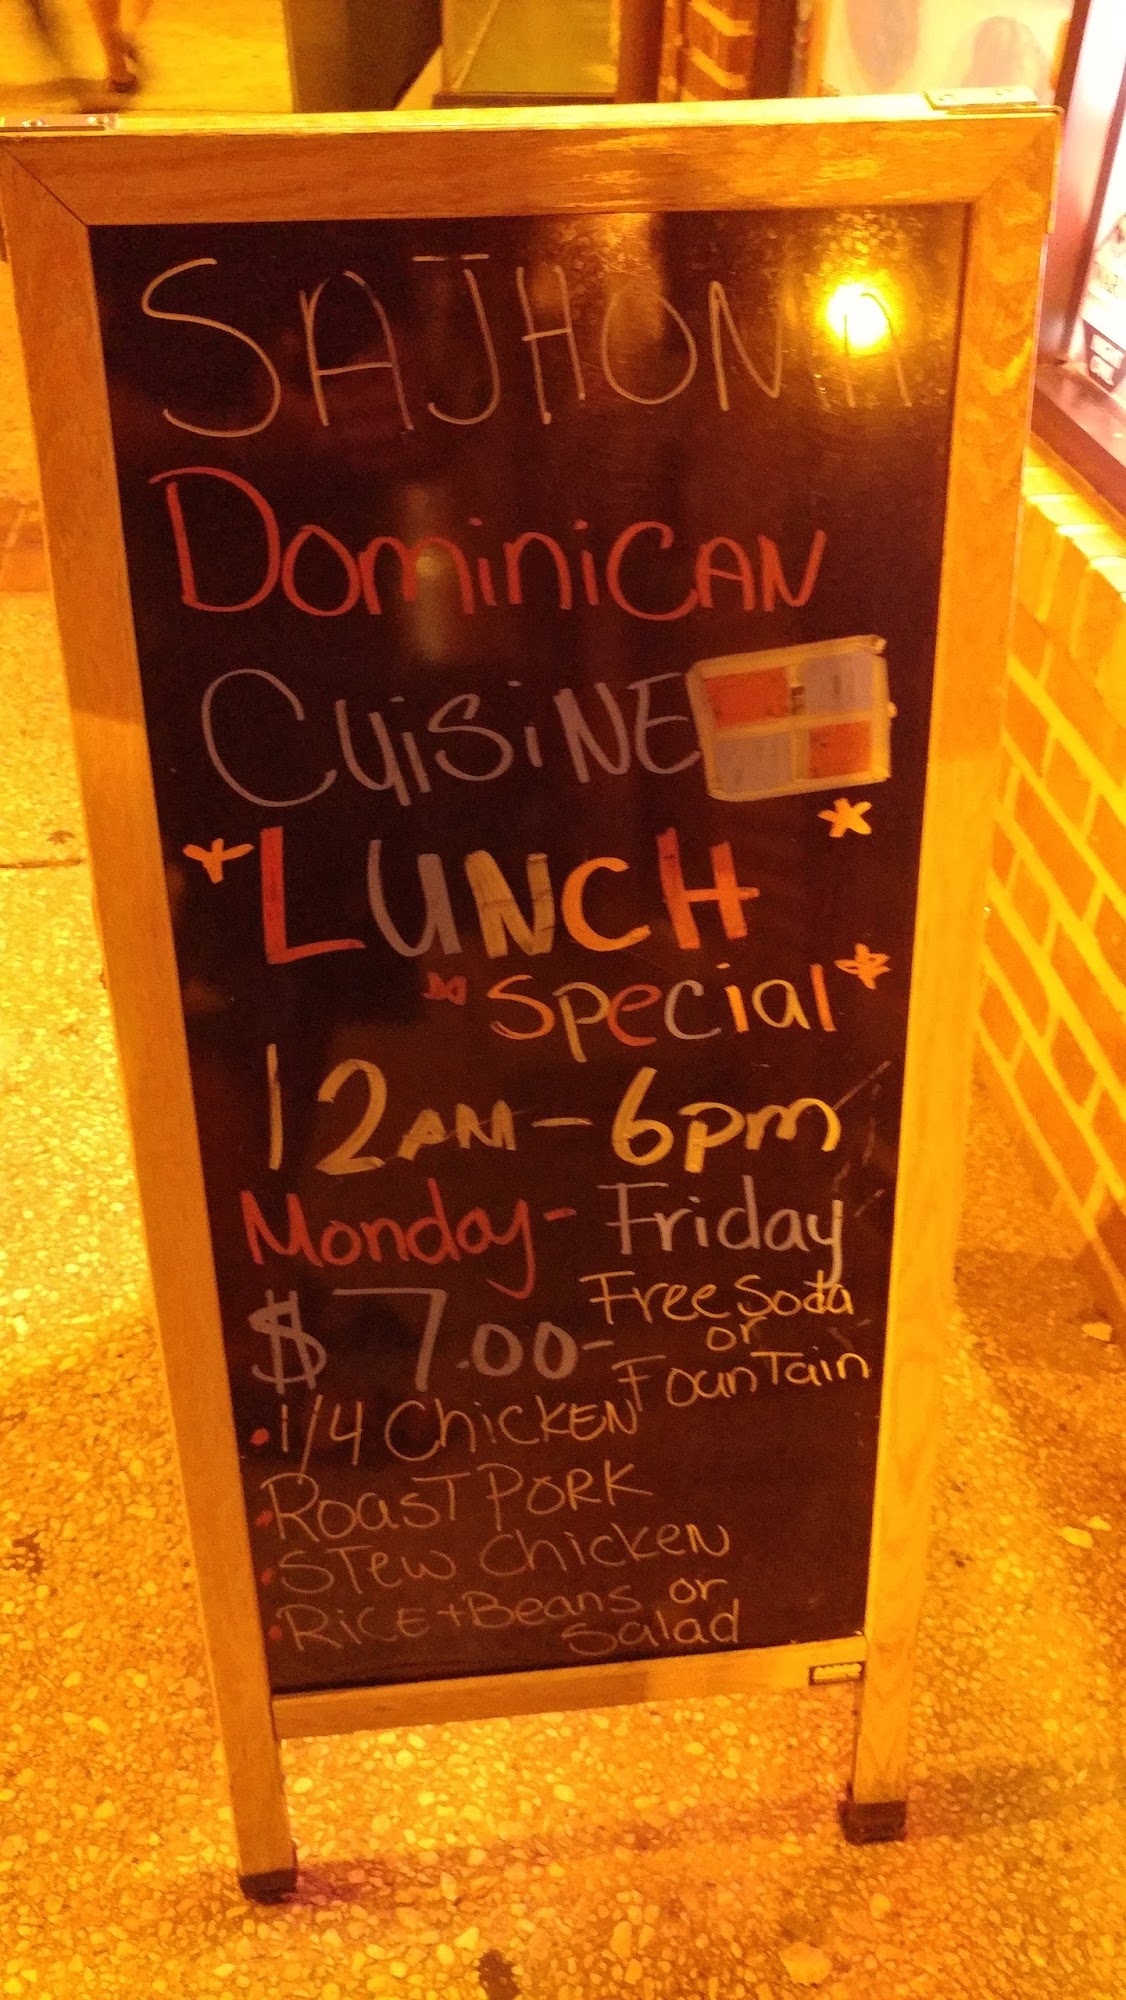 SAJHOMA
DominiCAN
CuisiNE
*LUNCH*
"Special*
12AM-6pm
Monday-Friday
$7.00- Free Soda
or
FounTain
• 1/4 ChicKEN
• RoasT PORK
• STew ChickeN
• RiCE+Beans or
Salad